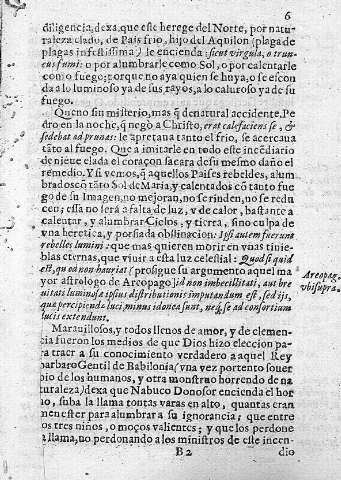 6
diligencia, dexa que este herege del Norte, por natu-
raleza elado, de Pais frio, hijo del Aquilon (plaga de
plagas infestissima) le encienda, sicut virgula, o trun-
cus fumi: o por alumbrarle como Sol, o por calentarle
como fuego; porque no aya quien se huya, o se escon
da a lo luminoso ya de sus rayos, a lo caluroso ya de su
fuego.
Que no sin misterio, mas q̃ de natural accidente, Pe
dro en la noche, q̃ negò a Christo, erat calefaciens se, &
sedebat ad prunas: le apretaua tanto el frio, se acercaua
tãto al fuego. Que a imitarle en todo este incẽdiario
de nieue elada el coraçon sacara de su mesmo daño el
remedio. Y si vemos, q̃ aquellos Paises rebeldes, alum
brados cõ tãto Sol de Maria, y calentados cõ tanto fue
go de su Imagen, no mejoran, no se rinden, no se redu
cen; essa no serà a falta de luz, v de calor, bastante a
calentar, y alumbrar Cielos, y tierra, sino culpa de
vna heretica, y porfiada obstinacion: Ipsi autem fuerunt
rebelles lumini: que mas quieren morir en vnas tinie-
blas eternas, que viuir a esta luz celestial: Quod si quid
est, quod non hauriat (prosigue su argumento aquel ma
yor astrologo de Areopago) id non imbecillitati, aut bre
uitati luminosæ ipsius distributionis imputandum est, sed ijs,
que percipiendæ luci minus idonea sunt, neq; se ad consortium
lucis extendunt.
Areopag.
vbi supra.
Marauillosos, y todos llenos de amor, y de clemen
cia fueron los medios de que Dios hizo eleccion pa-
ra traer a su conocimiento verdadero a aquel Rey
barbaro Gentil de Babilonia (vna vez portento souer
bio de los humanos, y otra monstruo horrendo de na
turaleza) dexa que Nabuco Donosor encienda el hor
nio, suba la llama tontas varas en alto, quantas eran
menester para alumbrar a su ignorancia; que entre
os tres niños, o moços valientes; y que los perdone
a llama, no perdonando a los ministros de este incen-
B 2
dio